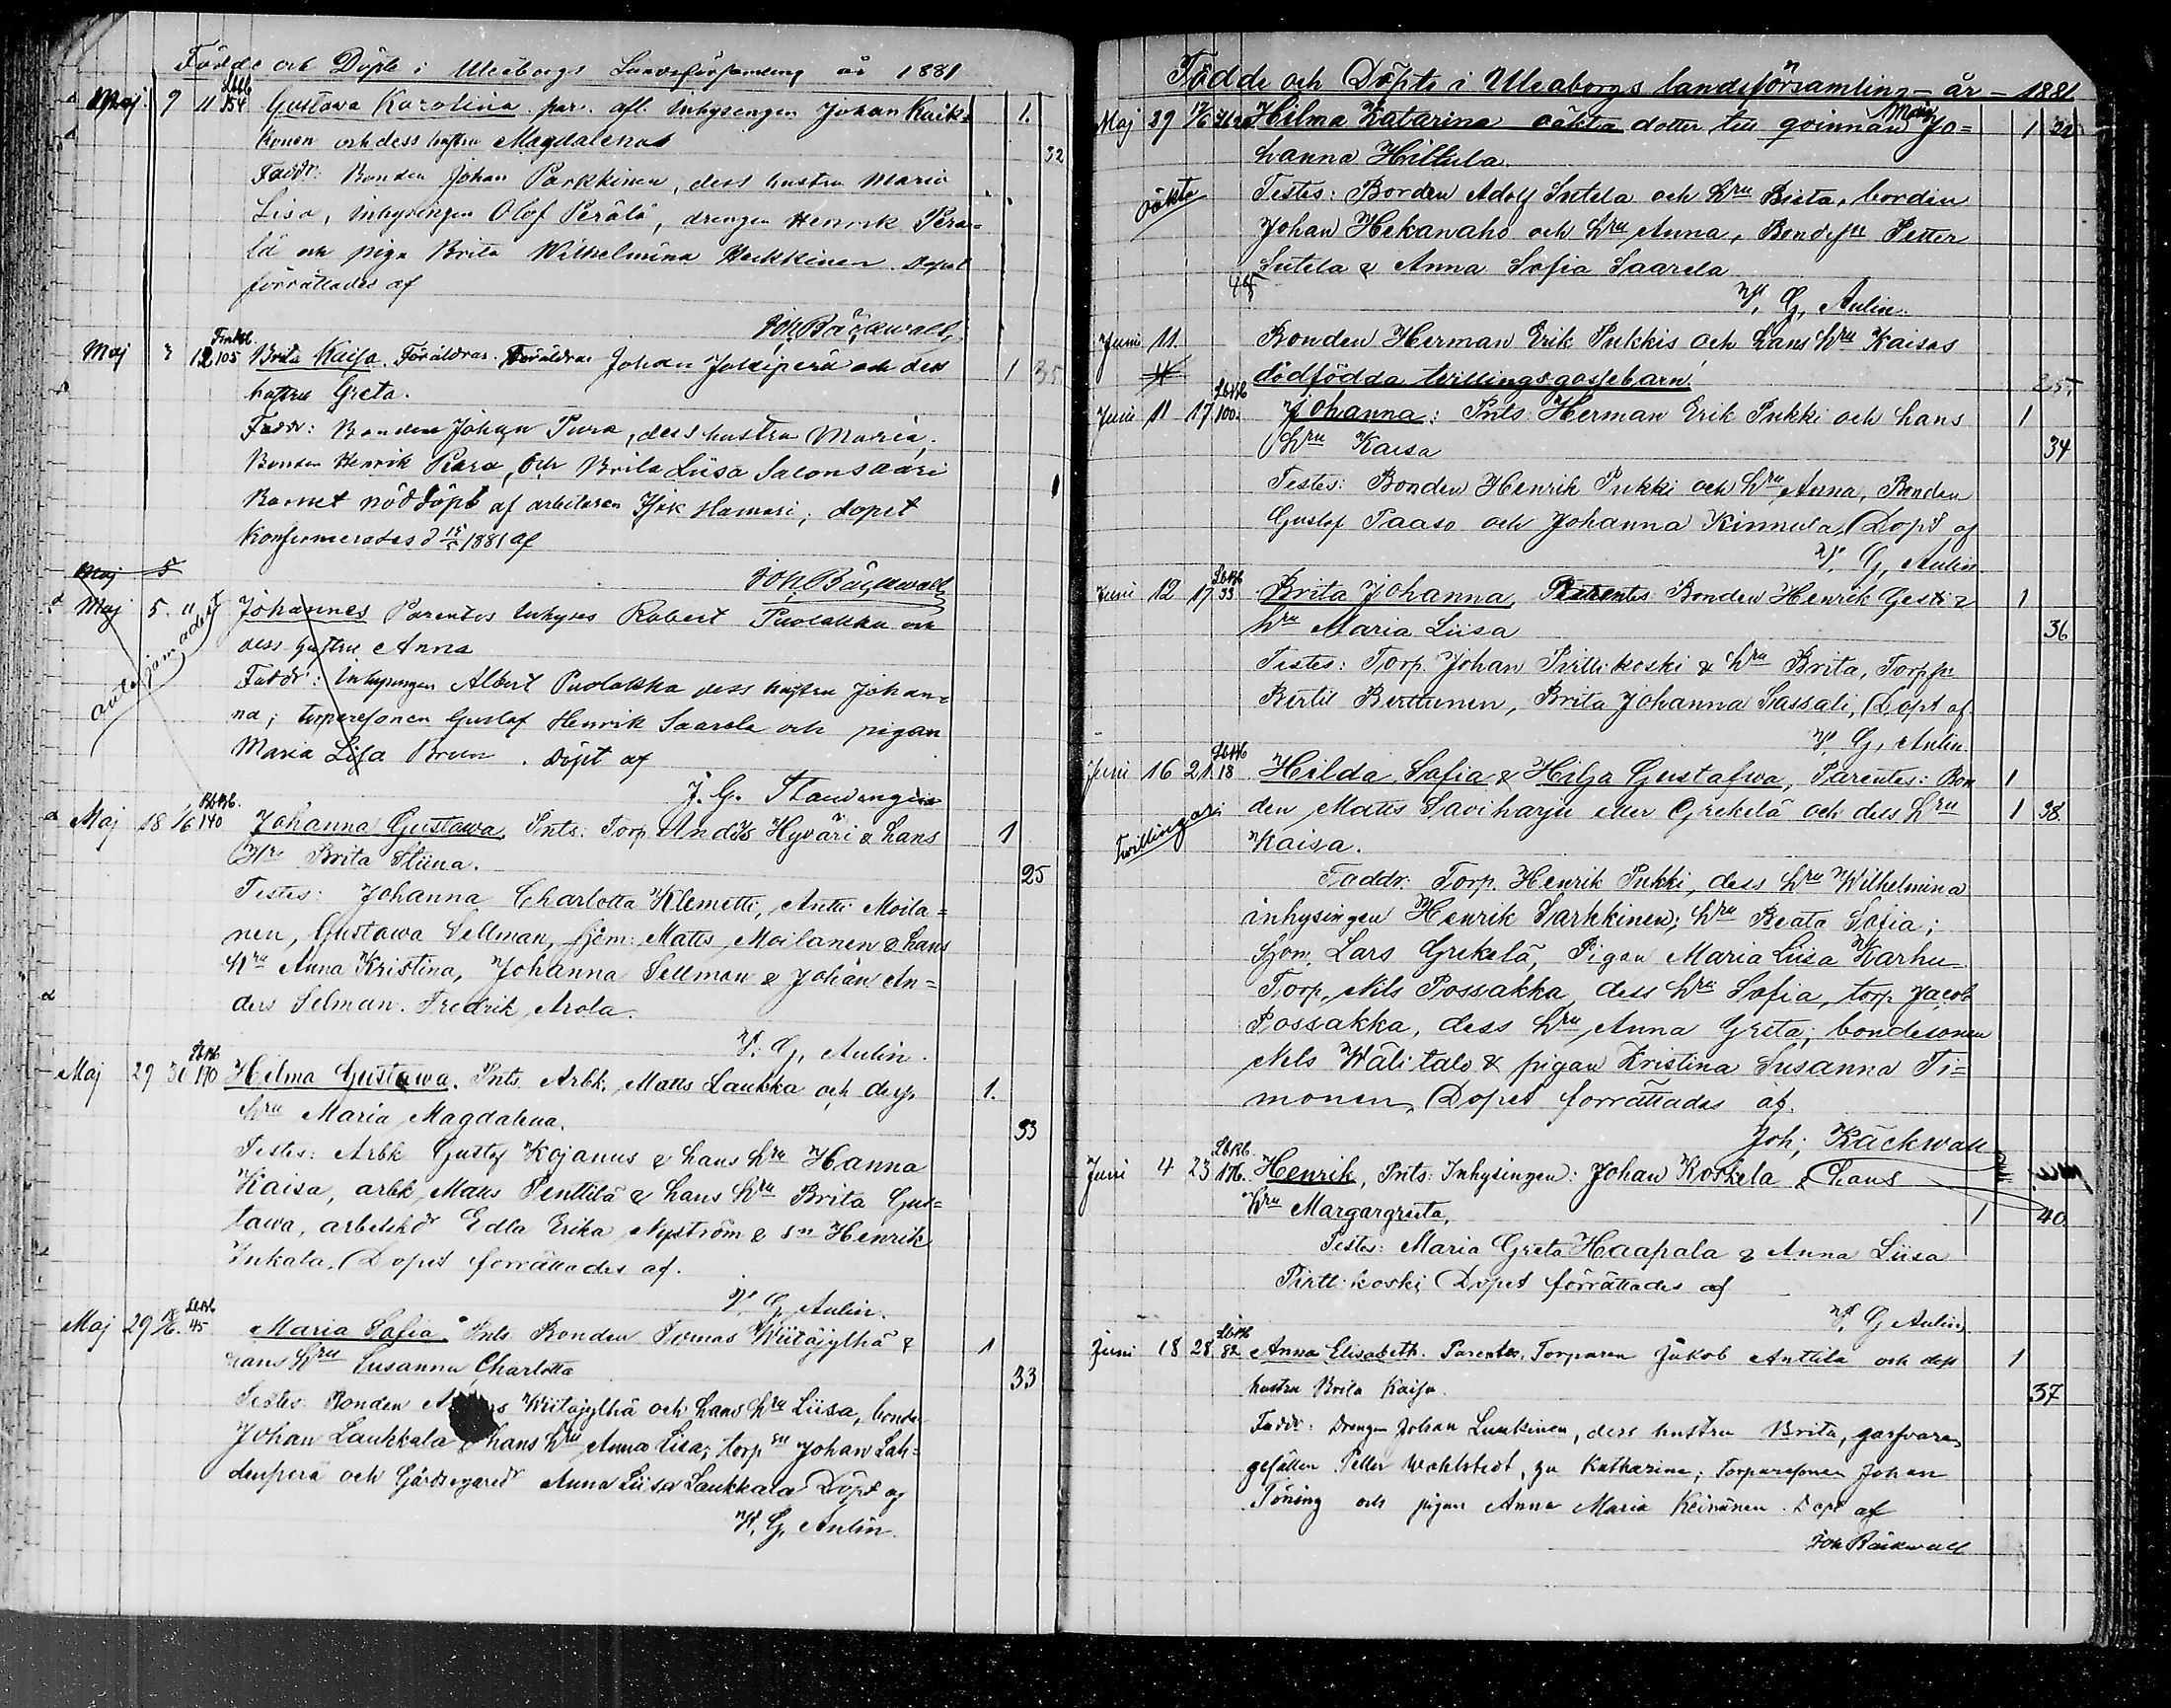 Födde och Döpte i Uleåborgs Landsförsamling år 1881
Maj 9 11 154 Gustava Karolina. par. afl. inhysengen Johan Kaik- 1.
konen och dess hustru Magdalena 32
Faddr: Bonden Johan Parkkinen, dess hustru Maria
Lisa, inhysingen Olof Perälä, drengen Henrik Perä-
lä och piga Brita Wilhelmina Heikkinen. Dopet
förrättades af
Joh. Bäckwall
Maj 3 12 105 Brita Kaisa. Föräldrar. Föräldrar Johan Jokiperä och dess 1 35
hustru Greta.
Faddr: Bonden Johan Pura, dess hustru Maria,
Bonden Henrik Piera, och Brita Liisa Salonsaari
Barnet nöddöpt af arbetaren Isak Hamari; dopet
Konfirmerades d 15/5 1881 af
Joh. Bäckwall
Maj 5
Maj 5. 11 Johannes Parentes Inhyses Robert Puolakka och
dess hustru Anna
Faddr: Inhysingen Albert Puolakka dess hustru Johan-
na; torparesonen Gustaf Henrik Saarela och pigan
Maria Lisa Brun. Döpt af
J. G.
Maj 18 1/6 140 Johanna Gustawa, Pnts: Torp Anders Hyväri & hans 1
Hru Brita Stiina. 25
Testes: Johanna Charlotta Klemetti, Antti Moila=
nen, Gustawa Sellman, hjem: Matts Moilanen & hans
Hru Anna Kristina, Johanna Sellman & Johan An=
ders Selman. Fredrik Arola.
W. G. Aulin.
Maj 29 31 170 Hilma Gustawa. Pnts Arbk. Matts Laukka och dess 1.
hru Maria Magdalena. 33
Testes: Arbk Gustaf Kojanus & hans hru Hanna
Kaisa, arbk Matts Penttilä & hans hru Brita Gus=
tawa, arbetskdr Edla Erika Nyström & sn Henrik
Inkala. Dopet förrättades af.
W. G. Aulin.
Maj 29 45 Maria Sofia. Pnts Bonden Tomas Wiitajylhä & 1
hans hru Susanna Charlotta 33
Testes Bonden Wiitajylhä och hans hru Liisa, bonde
Johan Laukkala & hans hru Anna Lisa, torp sn Johan Lah=
denperä och Gårdsegaredr Anna Liisa Laukkala Döpt af
W. G. Aulin.
Födde och Döpte i Uleaborgs landsförsamling år 1881
Maj 29 Hilma Katarina oäkta dotter till qvinnan Maria Jo= 1
hanna Hiltula.
oäkta Testes: Bonden Adolf Sutela och hru Brita, bonden
Johan Hekanaho och hru Anna, Bondesn Petter
Sutela & Anna Sofia Saarela
W. G. Aulin.
Juni 11. Bonden Herman Erik Pukkis och hans hru Kaisas
dödfödda tvillingsgossebarn 25
Juni 11 17 100. Johanna: Pnts: Herman Erik Pukki och hans 1
Hru Kaisa 34
Testes: Bonden Henrik Pukki och hru Anna, Bonden
Gustaf Paaso och Johanna Kinnula, Döpt af
W. G. Aulin
Juni 12 17 33 Brita Johanna, Parentes: Bonden Henrik Gesti & 1
hru Maria Liisa 36
Testes: Torp. Johan Pirttikoski & hru Brita, Torpsn
Bertil Berttunen, Brita Johanna Sassali, Döpt af
W. G. Aulin.
Juni 16 21. 18 Hilda Sofia & Hilja Gustafwa, Parentes: Bon 1
den Matts Saviharju eller Grekelä och dess hru 1 38
Tvillingar Kaisa.
Faddr. Torp. Henrik Pukki, dess hru Wilhelmina
inhysingen Henrik Sarkkinen; hru Beata Sofia;
hjon. Lars Grekelä, Pigan Maria Liisa Karhu
Torp. Nils Possakka, dess hru Sofia, torp Jacob
Possakka, dess hru Anna Greta; bondesonen
Nels Wälitalo & pigan Kristina Susanna Ti=
monen, Dopet forrättades af.
Joh; Bäckwall
Juni 4 23 176. Henrik, Pnts: Inhysingen: Johan Koskela & hans
Hru Margargreta, 1 40
Testes: Maria Greta Haapala & Anna Liisa
Pirttikoski Dopet förrättades af
W. G Aulin
Juni 18 28 82 Anna Elisabeth. Parentes. Torparen Jakob Anttila och dess 1
hustru Brita Kaisa. 37
Faddr: Drengen Johan Luukinen, dess hustru Brita, garfvare
gesällen Petter Wahlstedt, Katharina; Torparesonen Johan
Töning och pigan Anna Maria Keinänen. Döpt af
Joh Bäckwall